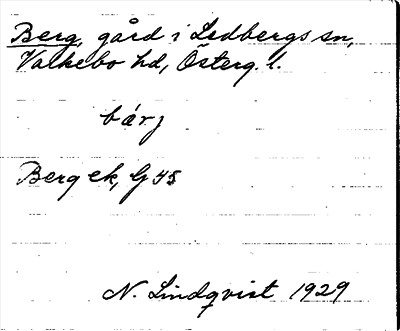 Berg, gård i Ledbergs sn,
Valkebo hd, Österg. l.
bárj
Berg ek, G 45
N. Lindqvist 1929